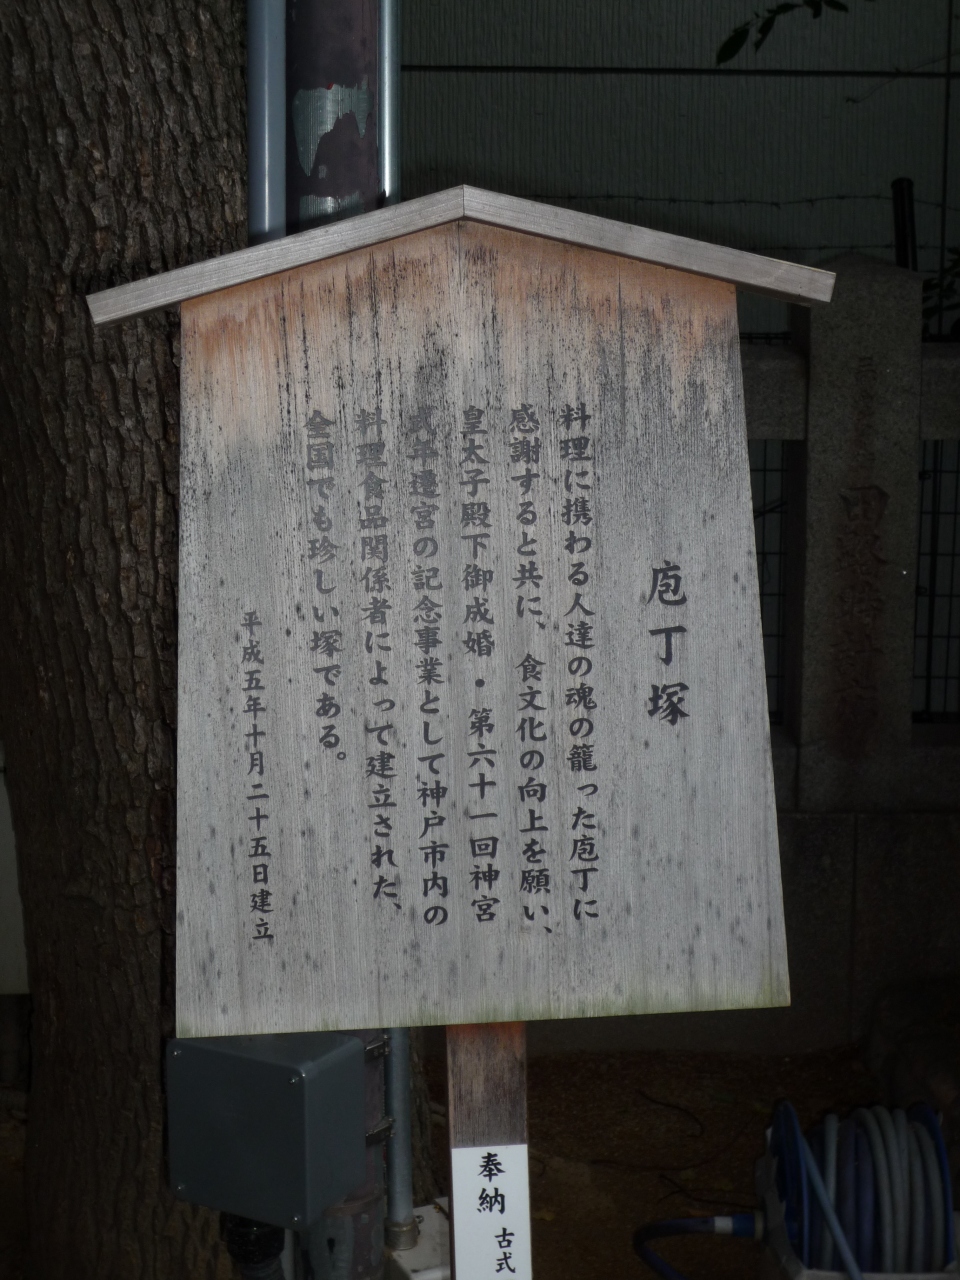 庖丁塚
料理に携わる人達の魂の籠った庖丁に
感謝すると共に、食文化の向上を願い、
皇太子殿下御成婚・第六十一回神宮
式年遷宮の記念事業として神戸市内の
料理食品関係者によって建立された、
全国でも珍しい塚である。
平成五年十月二十五日建立
奉納 古式